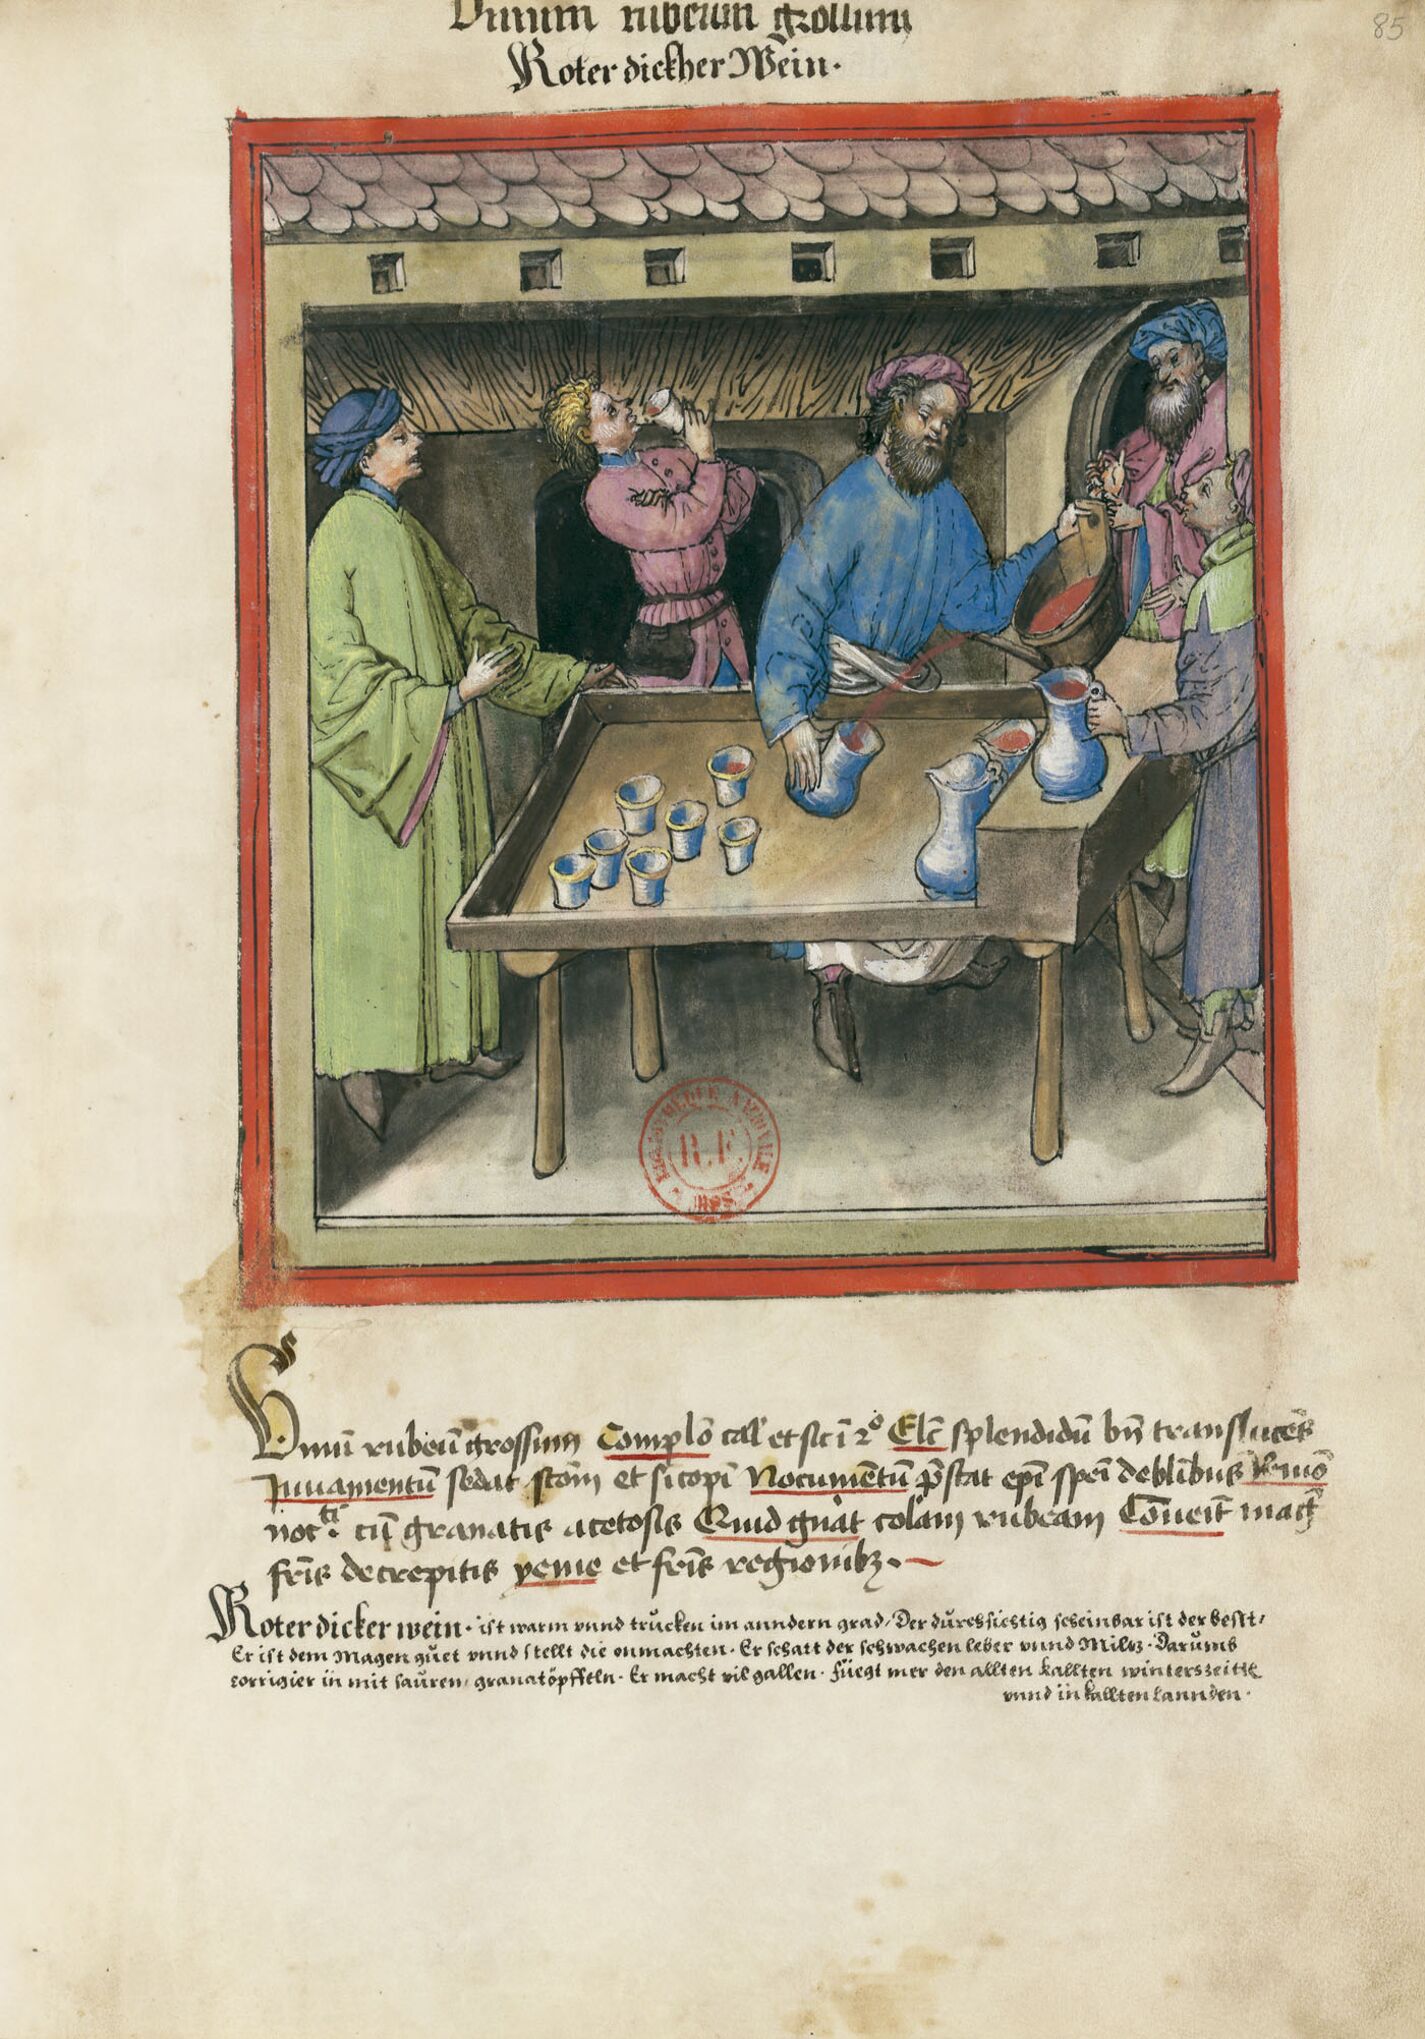 85
Vinum rubeum grossum
Roter dickher Wein.
R.F.
Vinū rubeū grossum Complō cal' et sic ī 2° Elc̄ splendidū bn̄ translucēs
Juuamentū sedat stōm et sicopī Nocumētū p̄stat epī spēi deblībus Remō
noctī. cū granatis acetosis Quid gnāt colam rubeam Cōueīt mag̃
frīs decrepitis yeme et frīs regionibꝫ.
Roter dicker wein. ist warm vnnd trucken im anndern grad / Der dürchsichtig scheinbar ist der besst /
Er ist dem Magen güet vnnd stellt die onmachten. Er schatt der schwachen leber vnnd Miltz. Darumb
corrigier in mit sauren / granatöpffeln. Er macht vil gallen. Füegt mer den allten kallten winterszeitte
vnnd in kallten lannden.